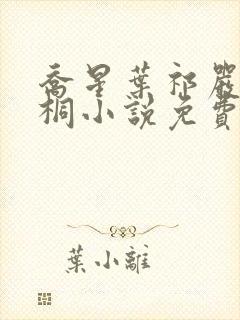 喬星葉祁嚴
桐小説免費
葉小離